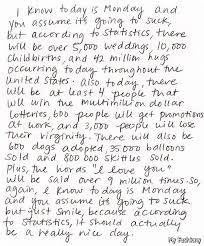 I know today is Monday and
you assume it's going to suck,
but according to statistics, there
will be over 5,000 weddings, 10,000
childbirths, and 42 million hugs
occurring today throughout the
United States. Also today, there
will be at least 4 people that
will win the multimillion dollar
lotteries, 600 people will get promotions
at work, and 3,000 people will lose
their virginity. There will also be
600 dogs adopted, 35000 balloons
sold and 800 000 skittles sold.
Plus, the words "I love you"
will be said over 9 million times. So,
again, I know today is Monday
and you assume it's going to suck
but just smile, because according
to statistics, it should actually
be a really nice day.